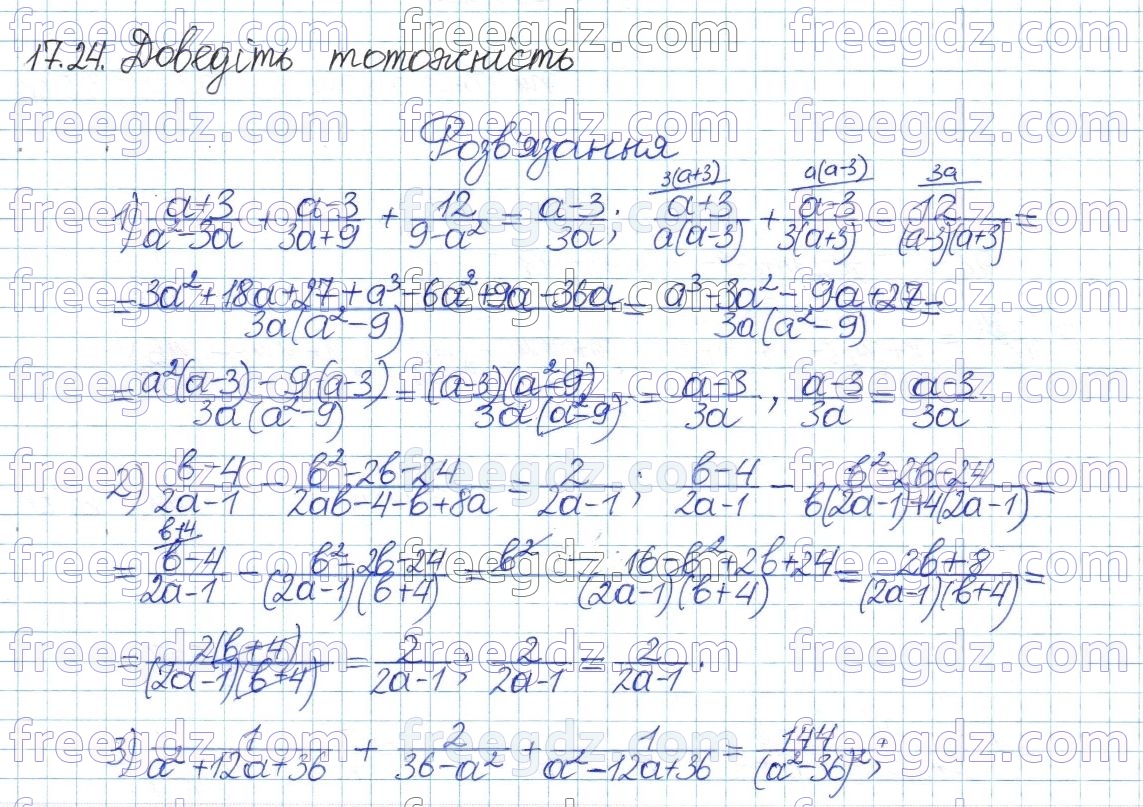 17.24. Доведіть тотожність
Розв'язання
1) (a+3)/(a²-3a) + (a-3)/(3a+9) + 12/(9-a²) = (a-3)/(3a); 3(a+3) (a+3)/(a(a-3)) + a(a-3) (a-3)/(3(a+3)) - 3a 12/((a-3)(a+3)) =
= (3a²+18a+27+a³-6a²+9a-36a)/(3a(a²-9)) = (a³-3a²-9a+27)/(3a(a²-9)) =
= (a²(a-3)-9(a-3))/(3a(a²-9)) = ((a-3)(a²-9))/(3a(a²-9)) = (a-3)/(3a), (a-3)/(3a) = (a-3)/(3a)
2) (в-4)/(2a-1) - (в²-2в-24)/(2aв-4-в+8a) = 2/(2a-1); (в-4)/(2a-1) - (в²-2в-24)/(в(2a-1)+4(2a-1)) =
= в+4 (в-4)/(2a-1) - (в²-2в-24)/((2a-1)(в+4)) = (в²-16-в²+2в+24)/((2a-1)(в+4)) = (2в+8)/((2a-1)(в+4)) =
= (2(в+4))/((2a-1)(в+4)) = 2/(2a-1); 2/(2a-1) = 2/(2a-1).
3) 1/(a²+12a+36) + 2/(36-a²) + 1/(a²-12a+36) = 144/(a²-36)²;
freegdz.com